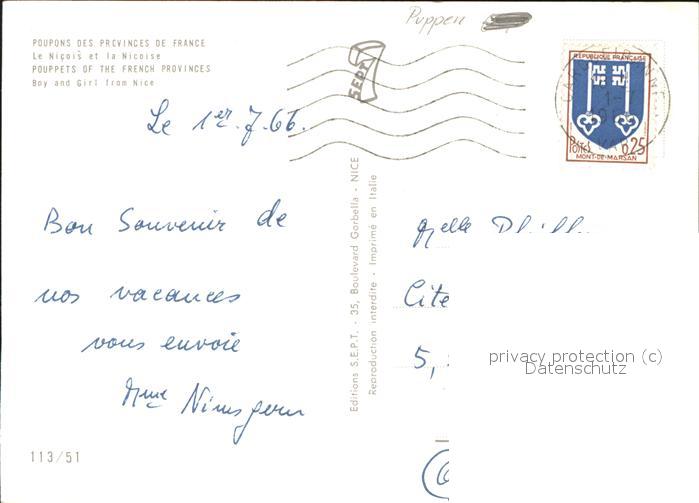 Puppen
POUPONS DES PROVINCES DE FRANCE
Le Niçois et la Nicoise
POUPPETS OF THE FRENCH PROVINCES
Boy and Girl from Nice
SEPT
RÉPUBLIQUE FRANÇAISE
1-7
POSTES 0,25
MONT-DE-MARSAN
Le 1er.7.66.
Bon Souvenir de
nos vacances
vous envoie
Mme
113/51
Editions S.E.P.T. - 35, Boulevard Gorbella - NICE
Reproduction interdite - Imprimé en Italie
Melle
Cite
5,
privacy protection (c)
Datenschutz